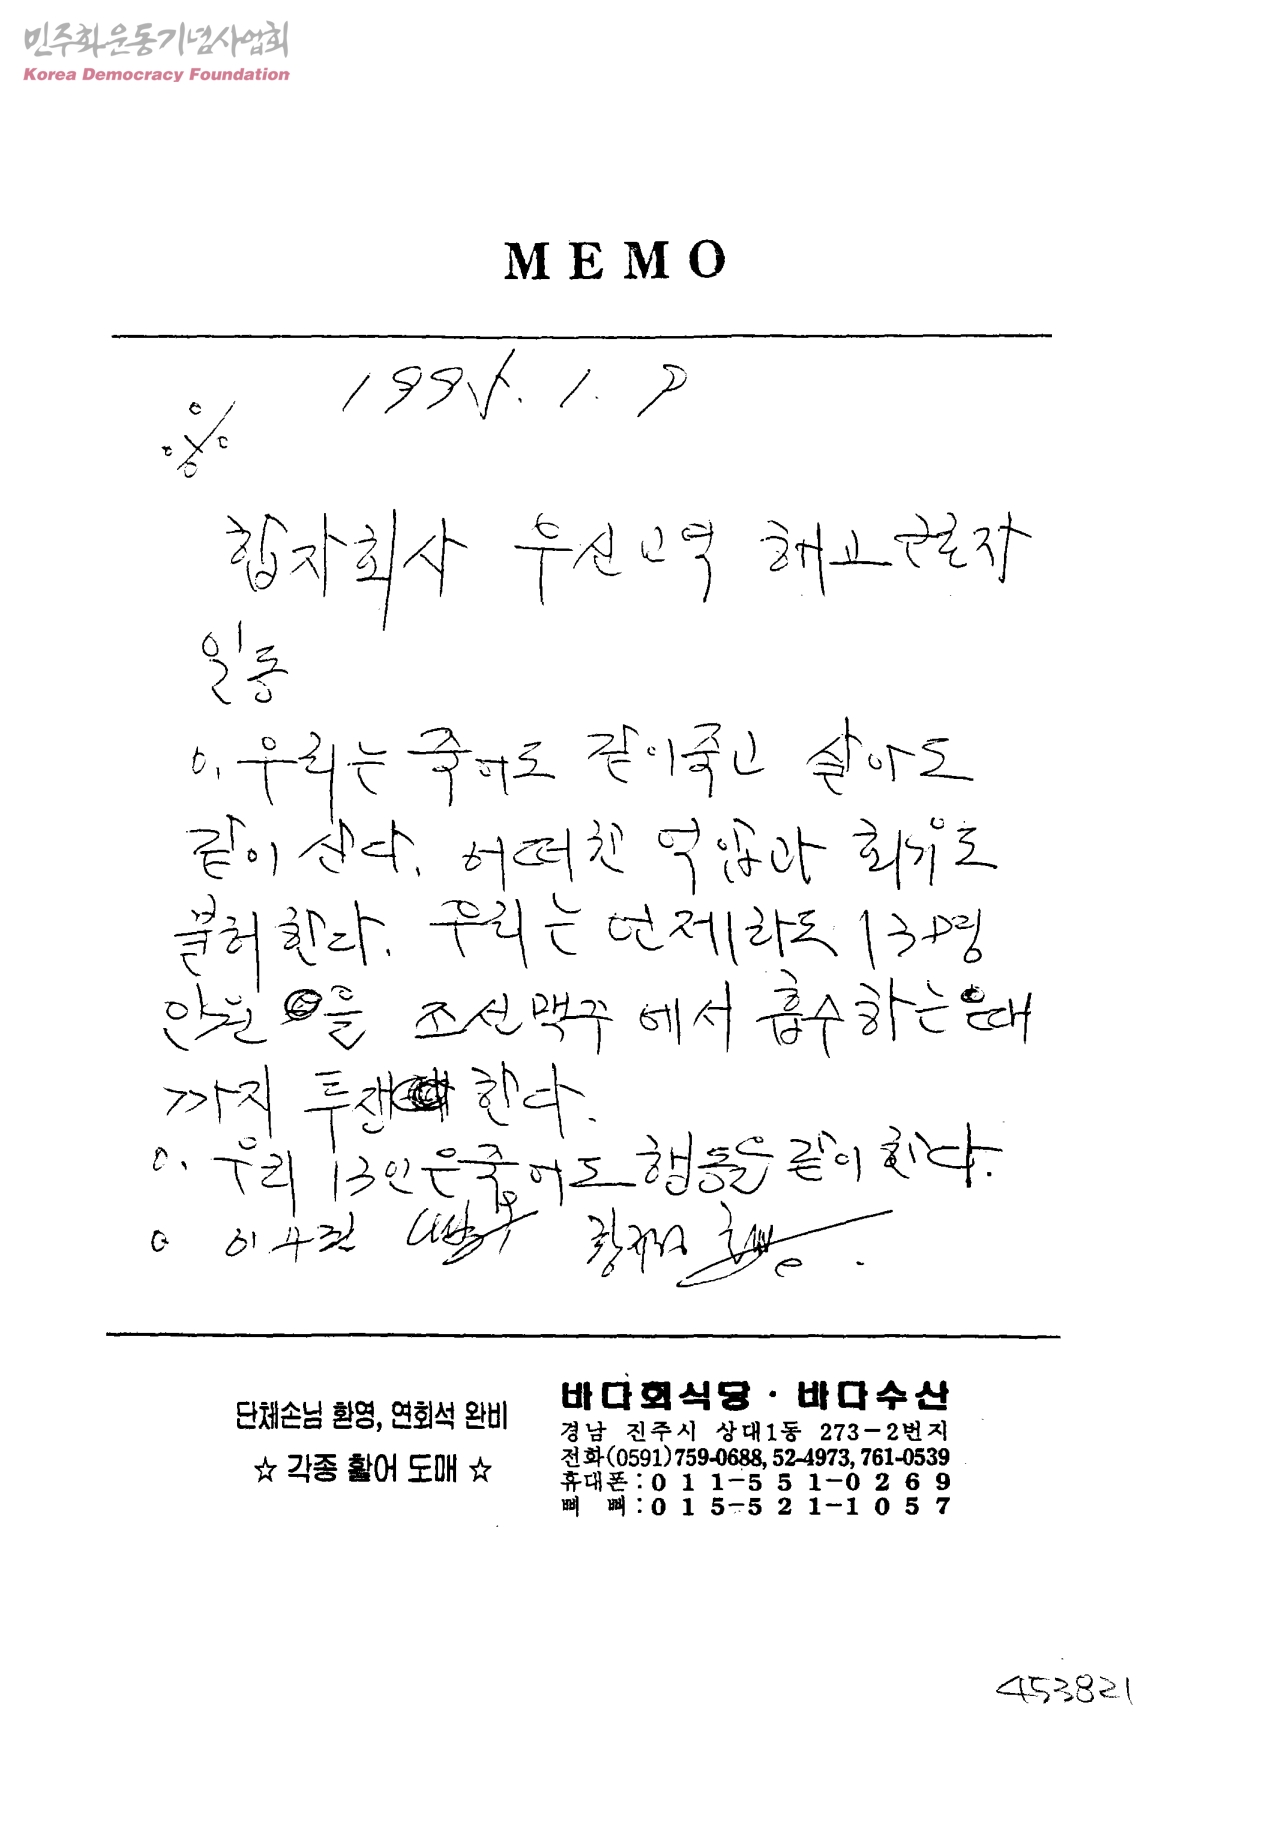 민주화운동기념사업회
Korea Democracy Foundation
MEMO
합자회사 우신고역 해고근로자
일동
0. 우리는 죽어도 같이죽고 살아도
같이 산다. 어떠한 억압과 회유도
불허 한다. 우리는 언제라도 13명
안원 을 조선맥주 에서 흡수하는 때
까지 투쟁 한다.
0. 우리 13인은 죽어도 행동을 같이 한다.
0 이수원
단체손님 환영, 연회석 완비
☆ 각종 활어 도매 ☆
바다회식당 · 바다수산
경남 진주시 상대1동 273-2번지
전화(0591)759-0688, 52-4973, 761-0539
휴대폰:011-551-0269
삐 삐:015-521-1057
453821